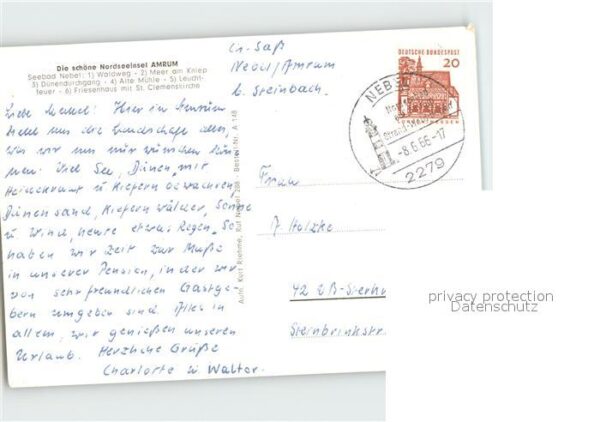 Die schöne Nordseeinsel AMRUM
Seebad Nebel: 1) Waldweg - 2) Meer am Kniep
3) Dünendurchgang - 4) Alte Mühle - 5) Leucht-
feuer - 6) Friesenhaus mit St. Clemenskirche
Hier in Amrum
uns die Landschaft alles,
was wir uns nur wünschen kön-
nen. Viel See, Dünen, mit
Heidekraut u Kiefern bewachsen,
Dünensand, Kiefernwälder, Sonne
u Wind, heute etwas Regen. So
haben wir Zeit zur Muße
in unserer Pension, in der wir
von sehr freundlichen Gastge-
bern umgeben sind. Alles in
allem, wir genießen unseren
Urlaub. Herzliche Grüße
Charlotte u Walter.
Aufn. Kurt Riehme, Ruf Nebel 288 - Bestell-Nr. A 148
Nebel/Amrum
b. Steinbach
DEUTSCHE BUNDESPOST
20
NEBEL
-8.6.66-17
2279
Frau
A Holzke
42 OB-Sterkr
Steinbrinkstr.
privacy protection
Datenschutz